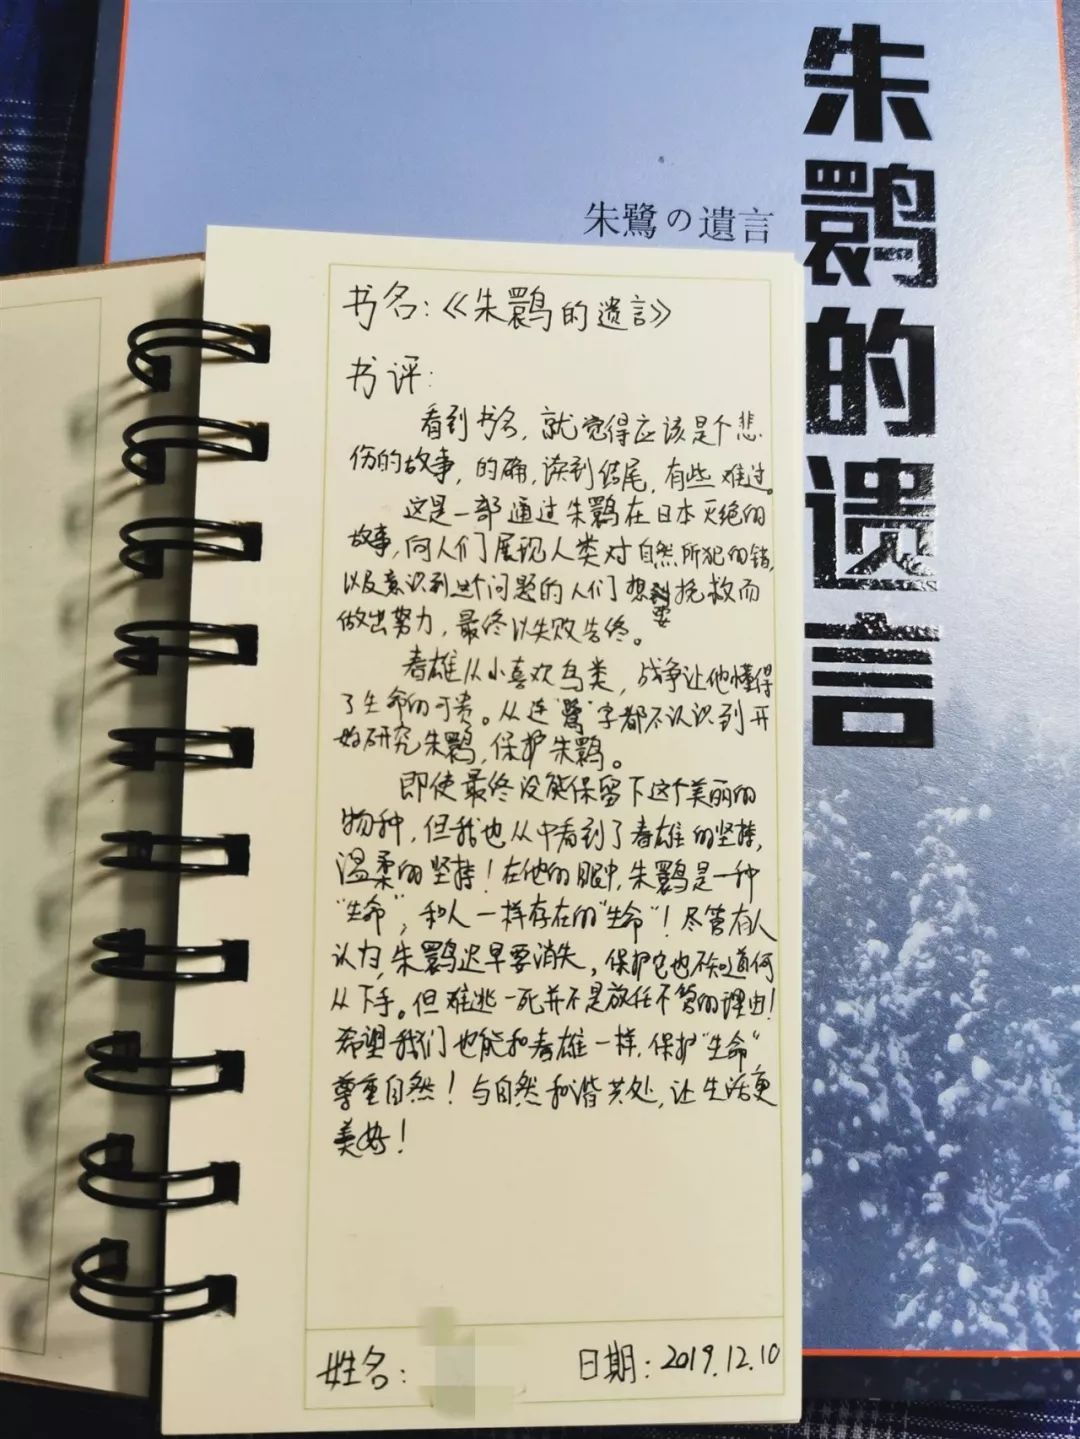 朱鹮的遗言
朱鷺の遺言
书名：《朱鹮的遗言》
书评：
看到书名，就觉得应该是个悲
伤的故事，的确，读到结尾，有些难过。
这是一部通过朱鹮在日本灭绝的
故事，向人们展现人类对自然所犯的错，
以及意识到这个问题的人们想要挽救而
做出努力，最终以失败告终。
春雄从小喜欢鸟类，战争让他懂得
了生命的可贵。从连“鹭”字都不认识到开
始研究朱鹮，保护朱鹮。
即使最终没能保留下这个美丽的
物种，但我也从中看到了春雄的坚持，
温柔的坚持！在他的眼中，朱鹮是一种
“生命”，和人一样存在的“生命”！尽管有人
认为，朱鹮迟早要消失，保护它也不知道何
从下手。但难逃一死并不是放任不管的理由！
希望我们也能和春雄一样，保护“生命”
尊重自然！与自然和谐共处，让生活更
美好！
姓名：
日期：2019.12.10